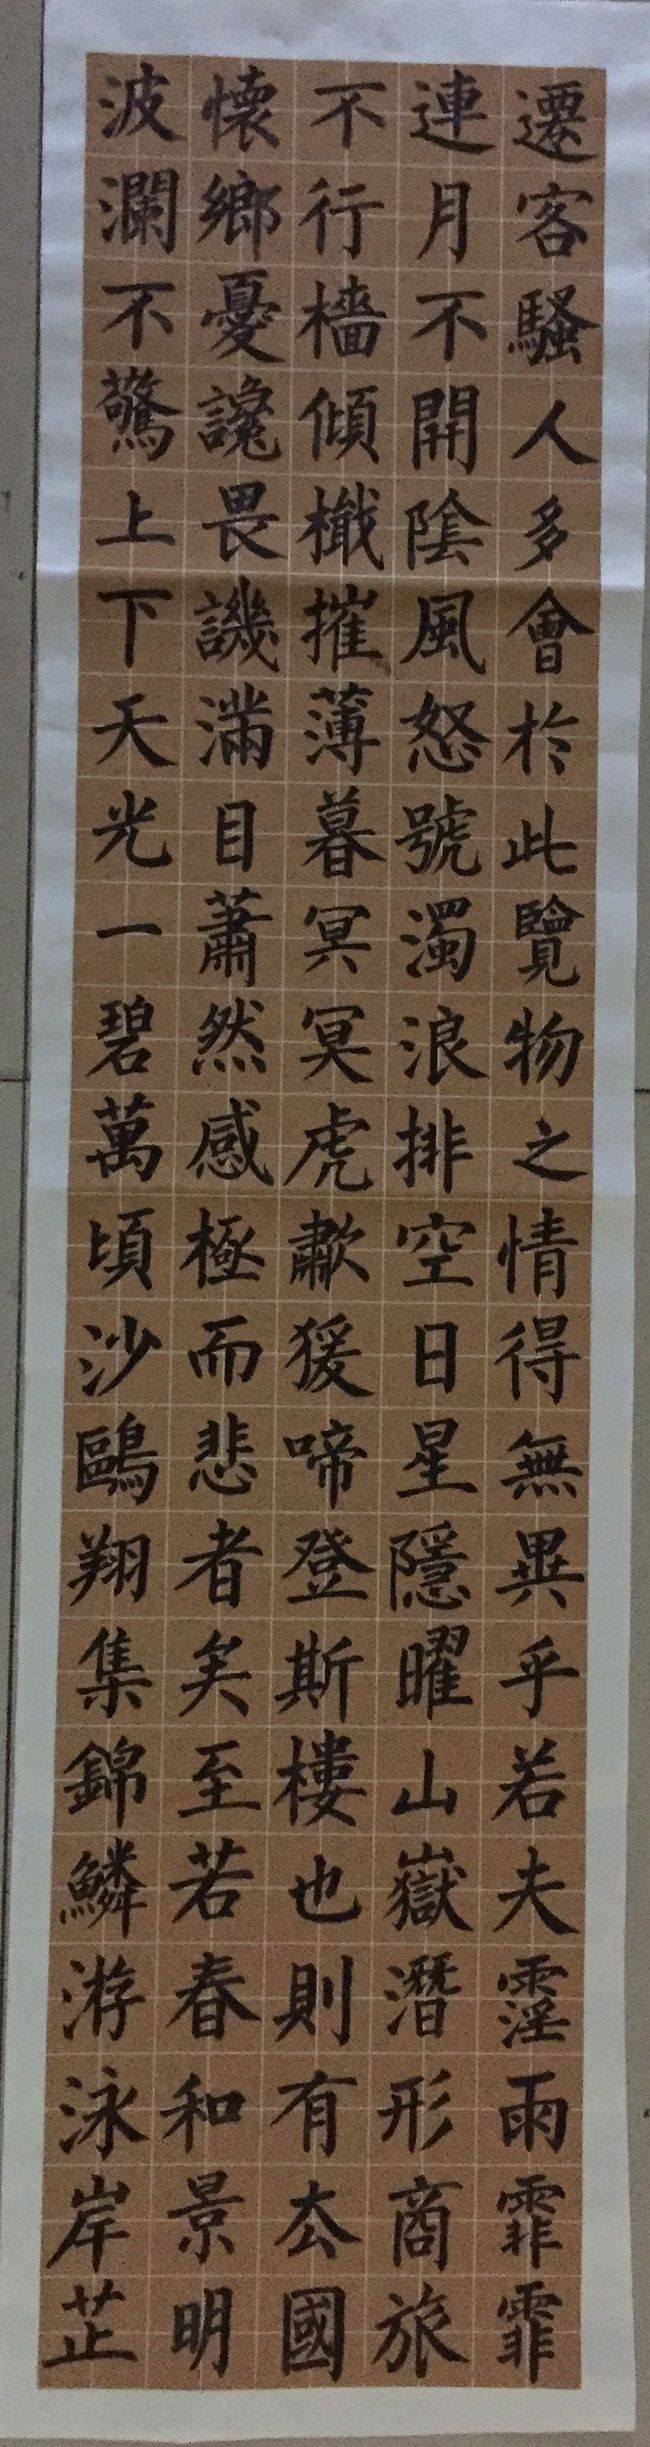 遷客騷人多會於此覽物之情得無異乎若夫霪雨霏霏
連月不開陰風怒號濁浪排空日星隱曜山嶽潛形商旅
不行檣傾檝摧薄暮冥冥虎歗猨啼登斯樓也則有厺國
懷鄉憂讒畏譏滿目蕭然感極而悲者矣至若春和景明
波瀾不驚上下天光一碧萬頃沙鷗翔集錦鱗游泳岸芷